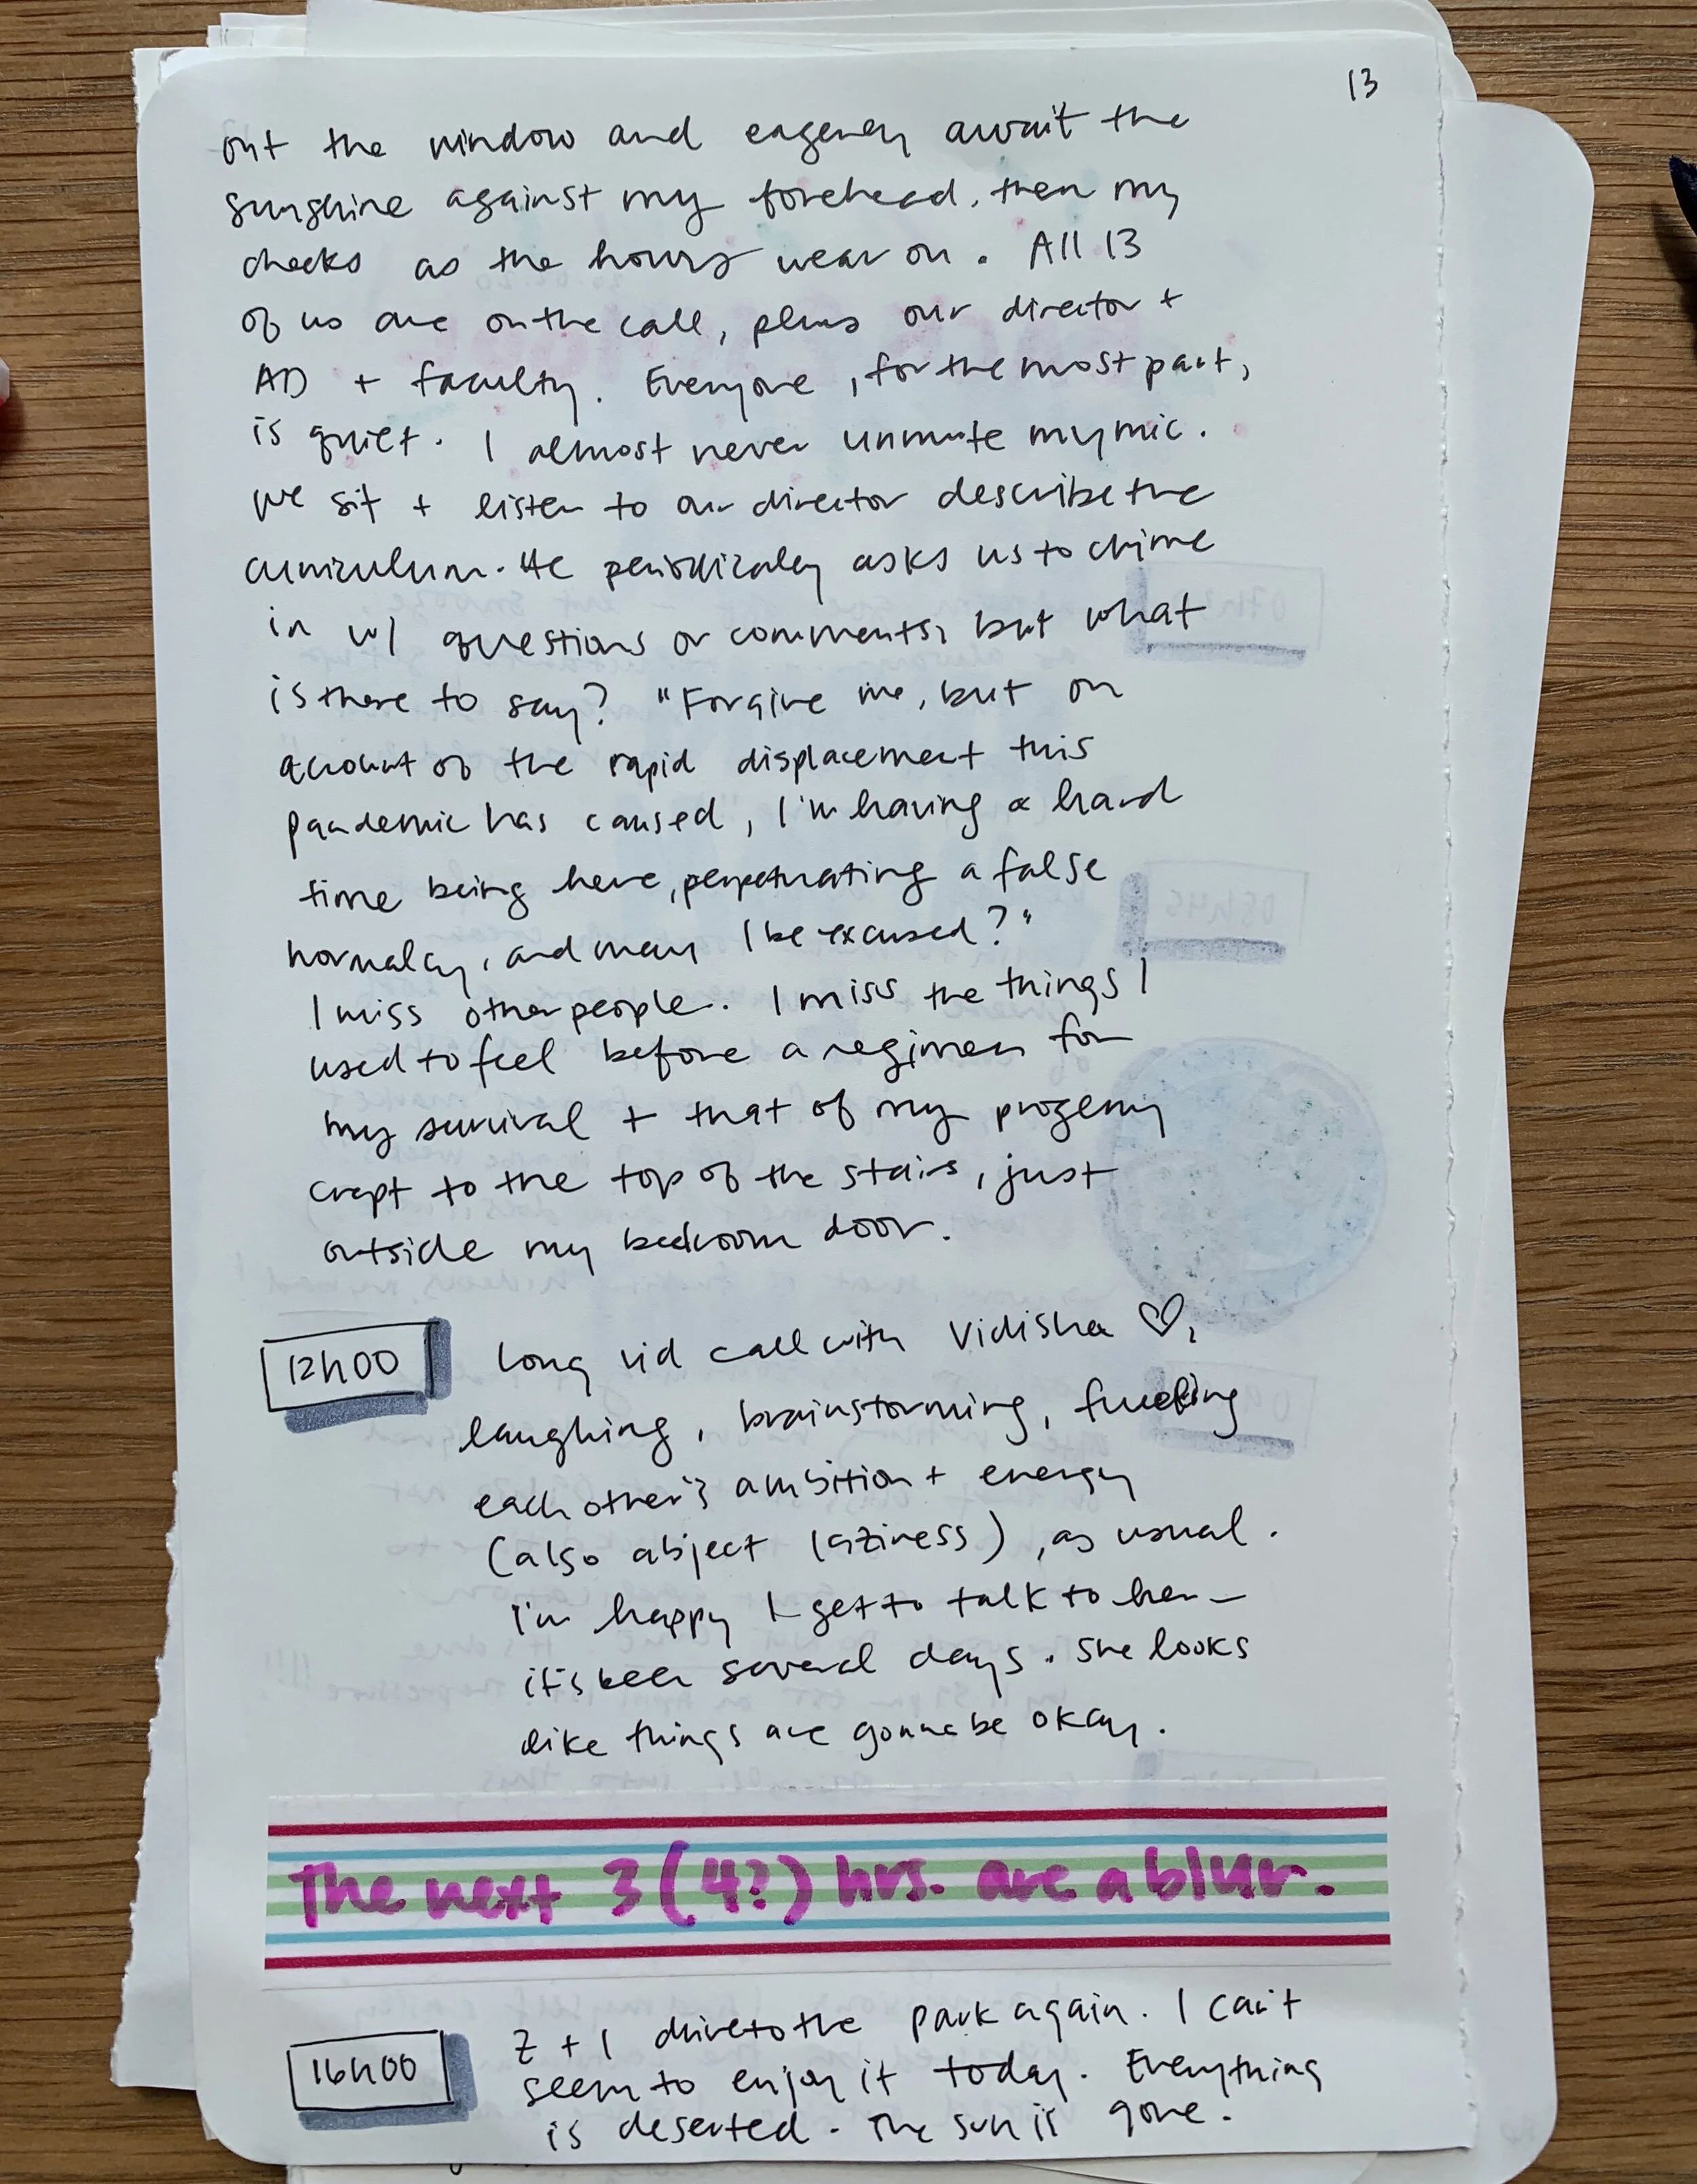 13
out the window and eagerly await the
sunshine against my forehead, then my
cheeks as the hours wear on. All 13
of us are on the call, plus our director +
AD + faculty. Everyone, for the most part,
is quiet. I almost never unmute my mic.
We sit + listen to our director describe the
curriculum. He periodically asks us to chime
in w/ questions or comments, but what
is there to say? "Forgive me, but on
account of the rapid displacement this
pandemic has caused, I'm having a hard
time being here, perpetuating a false
normalcy, and may I be excused?"
I miss other people. I miss the things I
used to feel before a regimen for
my survival + that of my progeny
crept to the top of the stairs, just
outside my bedroom door.
12h00 Long vid call with Vidisha ♡,
laughing, brainstorming, fueling
each other's ambition + energy
(also abject laziness), as usual.
I'm happy I get to talk to her—
it's been several days. She looks
like things are gonna be okay.
The next 3 (4?) hrs. are a blur.
16h00 Z + I drive to the park again. I can't
seem to enjoy it today. Everything
is deserted. The sun is gone.